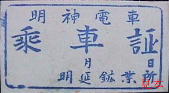 明神電車
乗車証
月日
明延鉱業所